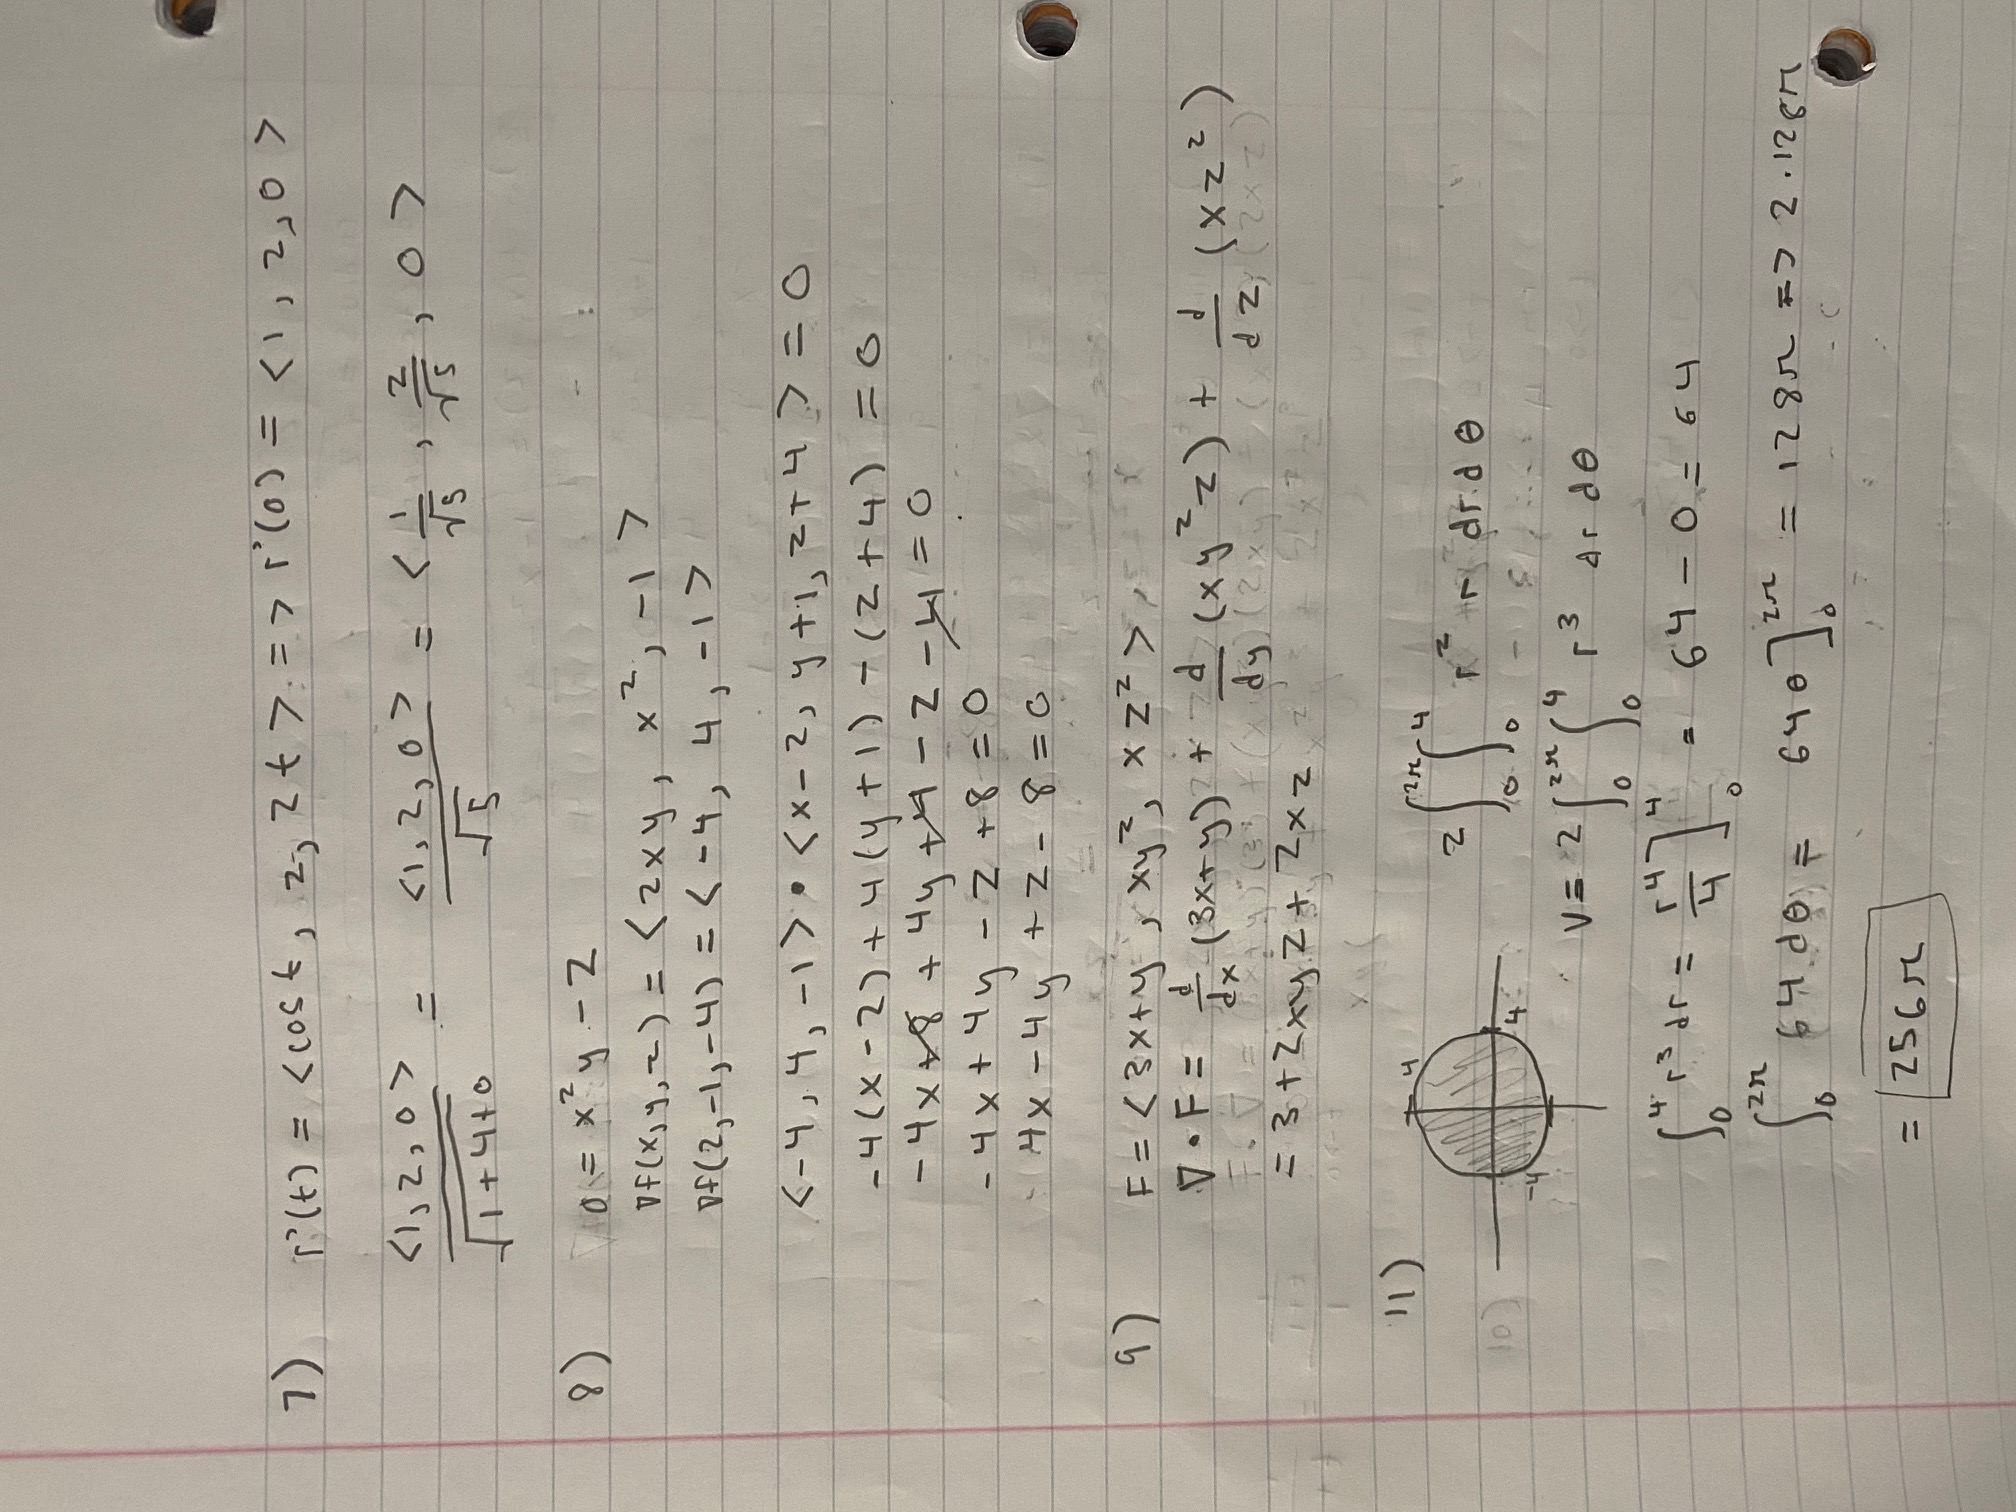 7) r'(t) = <cos t, 2, 2t> => r'(0) = <1, 2, 0>
<1, 2, 0> / √(1+4+0) = <1, 2, 0> / √5 = <1/√5, 2/√5, 0>
8) 0 = x²y - z
∇f(x,y,z) = <2xy, x², -1>
∇f(2,-1,-4) = <-4, 4, -1>
<-4, 4, -1> • <x-2, y+1, z+4> = 0
-4(x-2) + 4(y+1) - (z+4) = 0
-4x+8 + 4y+4 - z - 4 = 0
-4x + 4y - z + 8 = 0
4x - 4y + z - 8 = 0
9) F = <3x+y, xy², xz²>
∇•F = d/dx (3x+y) + d/dy (xy²z) + d/dz (xz²)
= 3 + 2xyz + 2xz
11) 4 -4 4 2∫₀^2π ∫₀^4 r² r dr dθ
V = 2∫₀^2π ∫₀^4 r³ dr dθ
∫₀^4 r³ dr = r⁴/4 ]₀^4 = 64 - 0 = 64
∫₀^2π 64 dθ = 64θ ]₀^2π = 128π => 2·128π
= 256π